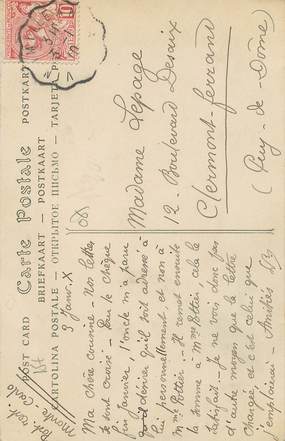 Carte Postale
POST CARD — BRIEFKAART — POSTKAART — POSTKARTE
CARTOLINA POSTALE — ОТКРЫТОЕ ПИСЬМО — TARJETA
Monte Carlo
3 Janv. X
Ma chère cousine – Nos lettres
se sont croisé – Pour le chèque
fin janvier, l'oncle m'a paru
désirer qu'il soit adressé à
lui personnellement et non à
Mme Pottier. Il remet ensuite
la somme à Mme Pottier cela le
satisfait – Je ne vois donc pas
d'autre moyen que la lettre
chargée, et c'est celui que
j'emploierai – Amitiés
Madame Lepage
12. Boulevard Desaix
Clermont-ferrand
(Puy-de-Dôme)